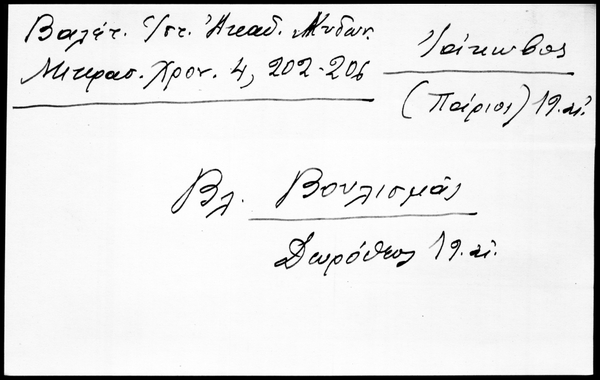 Βαλέτ. Ἱστ. Ἀκαδ. Κυδων.
Μικρασ. Χρον. 4, 202-206
Ἰάκωβος
(Πάριος) 19. αἰ.
Βλ. Βουλισμᾶς
Δωρόθεος 19. αἰ.